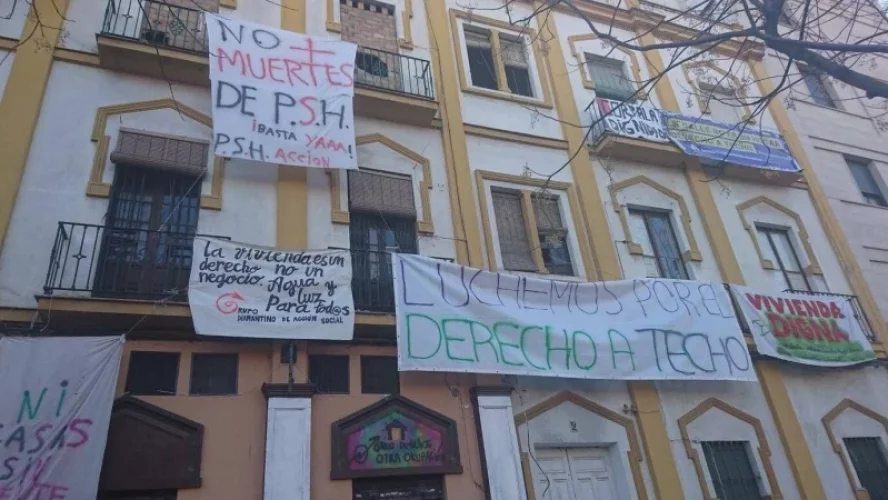 NO MUERTES
DE P.S.H.
¡BASTA YAAA!
P.S.H. ACCION
POR LA
DIGNIDAD
La vivienda es un
derecho no un
negocio. Agua y
luz
Para tod@s
GRUPO
DE ACCION SOCIAL
LUCHEMOS POR EL
DERECHO A TECHO
VIVIENDA
DIGNA
NI
CASAS
SIN
GENTE
OTRA